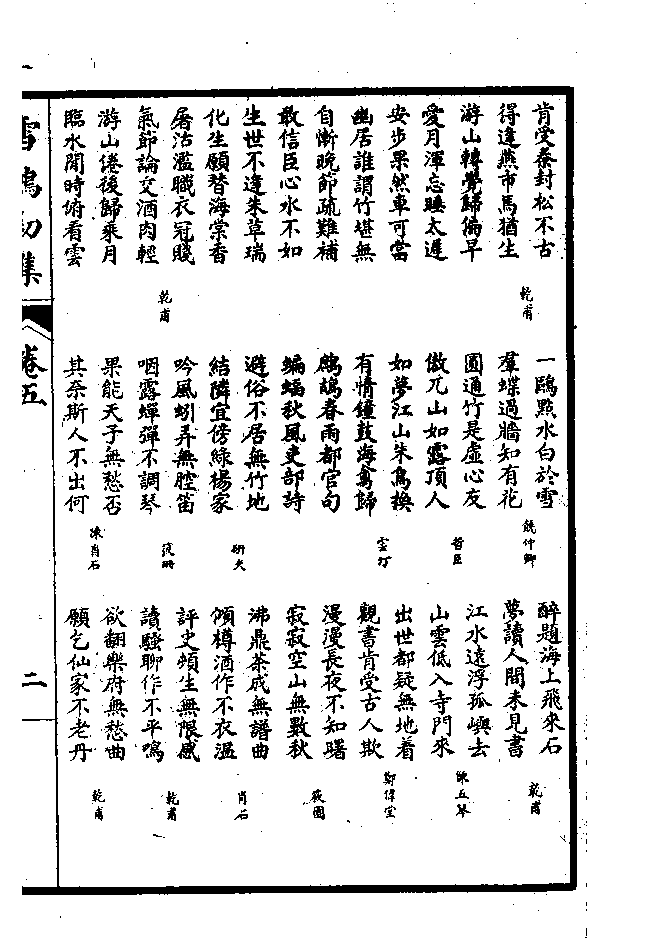 肯受秦封松不古
得逢燕市馬猶生
乾甫
游山轉覺歸偏早
愛月渾忘睡太遲
安步果然車可當
幽居誰謂竹堪無
自慚晚節疏難補
敢信臣心水不如
生世不逢朱草瑞
化生願替海棠香
屠沽濫職衣冠賤
氣節論交酒肉輕
乾甫
游山倦後歸乘月
臨水閒時俯看雲
一鷗點水白於雪
羣蝶過牆知有花
饒仲卿
圓通竹是虛心友
傲兀山如露頂人
哲臣
如夢江山朱鳥換
有情鐘鼓海禽歸
雲汀
鷓鴣春雨都官句
蝙蝠秋風吏部詩
避俗不居無竹地
結隣宜傍綠楊家
研夫
吟風蚓弄無腔笛
咽露蟬彈不調琴
筱珊
果能天子無愁否
其奈斯人不出何
陳肖石
醉題海上飛來石
夢讀人間未見書
乾甫
江水遠浮孤嶼去
山雲低入寺門來
陳丘琴
出世都疑無地着
觀書肯受古人欺
鄭偉堂
漫漫長夜不知曙
寂寂空山無數秋
筱園
沸鼎茶成無譜曲
傾樽酒作不衣溫
肖石
評史頻生無限感
讀騷聊作不平鳴
乾甫
欲翻樂府無愁曲
願乞仙家不老丹
乾甫
雪鴻初集
卷五
二